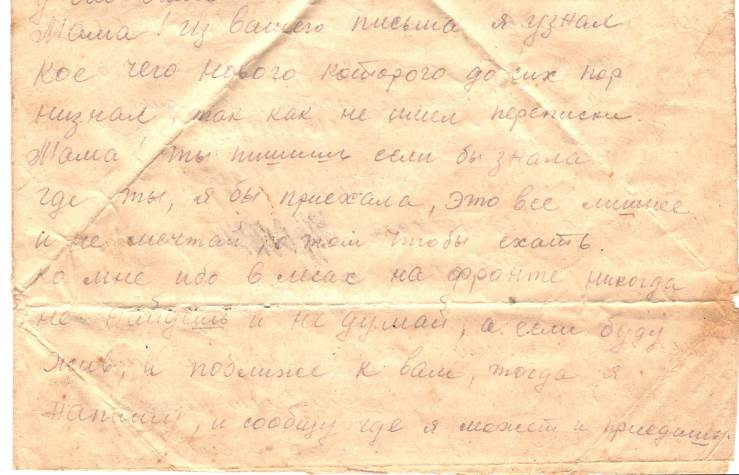 Мама! из вашего письма я узнал
кое чего нового которого до сих пор
низнал, так как не имел переписки.
Мама! ты пишишь если бы знала
где ты, я бы приехала, это все лишнее
и не мечтай о том чтобы ехать.
ко мне ибо в лесах на фронте никогда
не найдешь и не думай, а если буду
жив, и поближе к вам, тогда я
напишу, и сообщу где я может и приедешь.